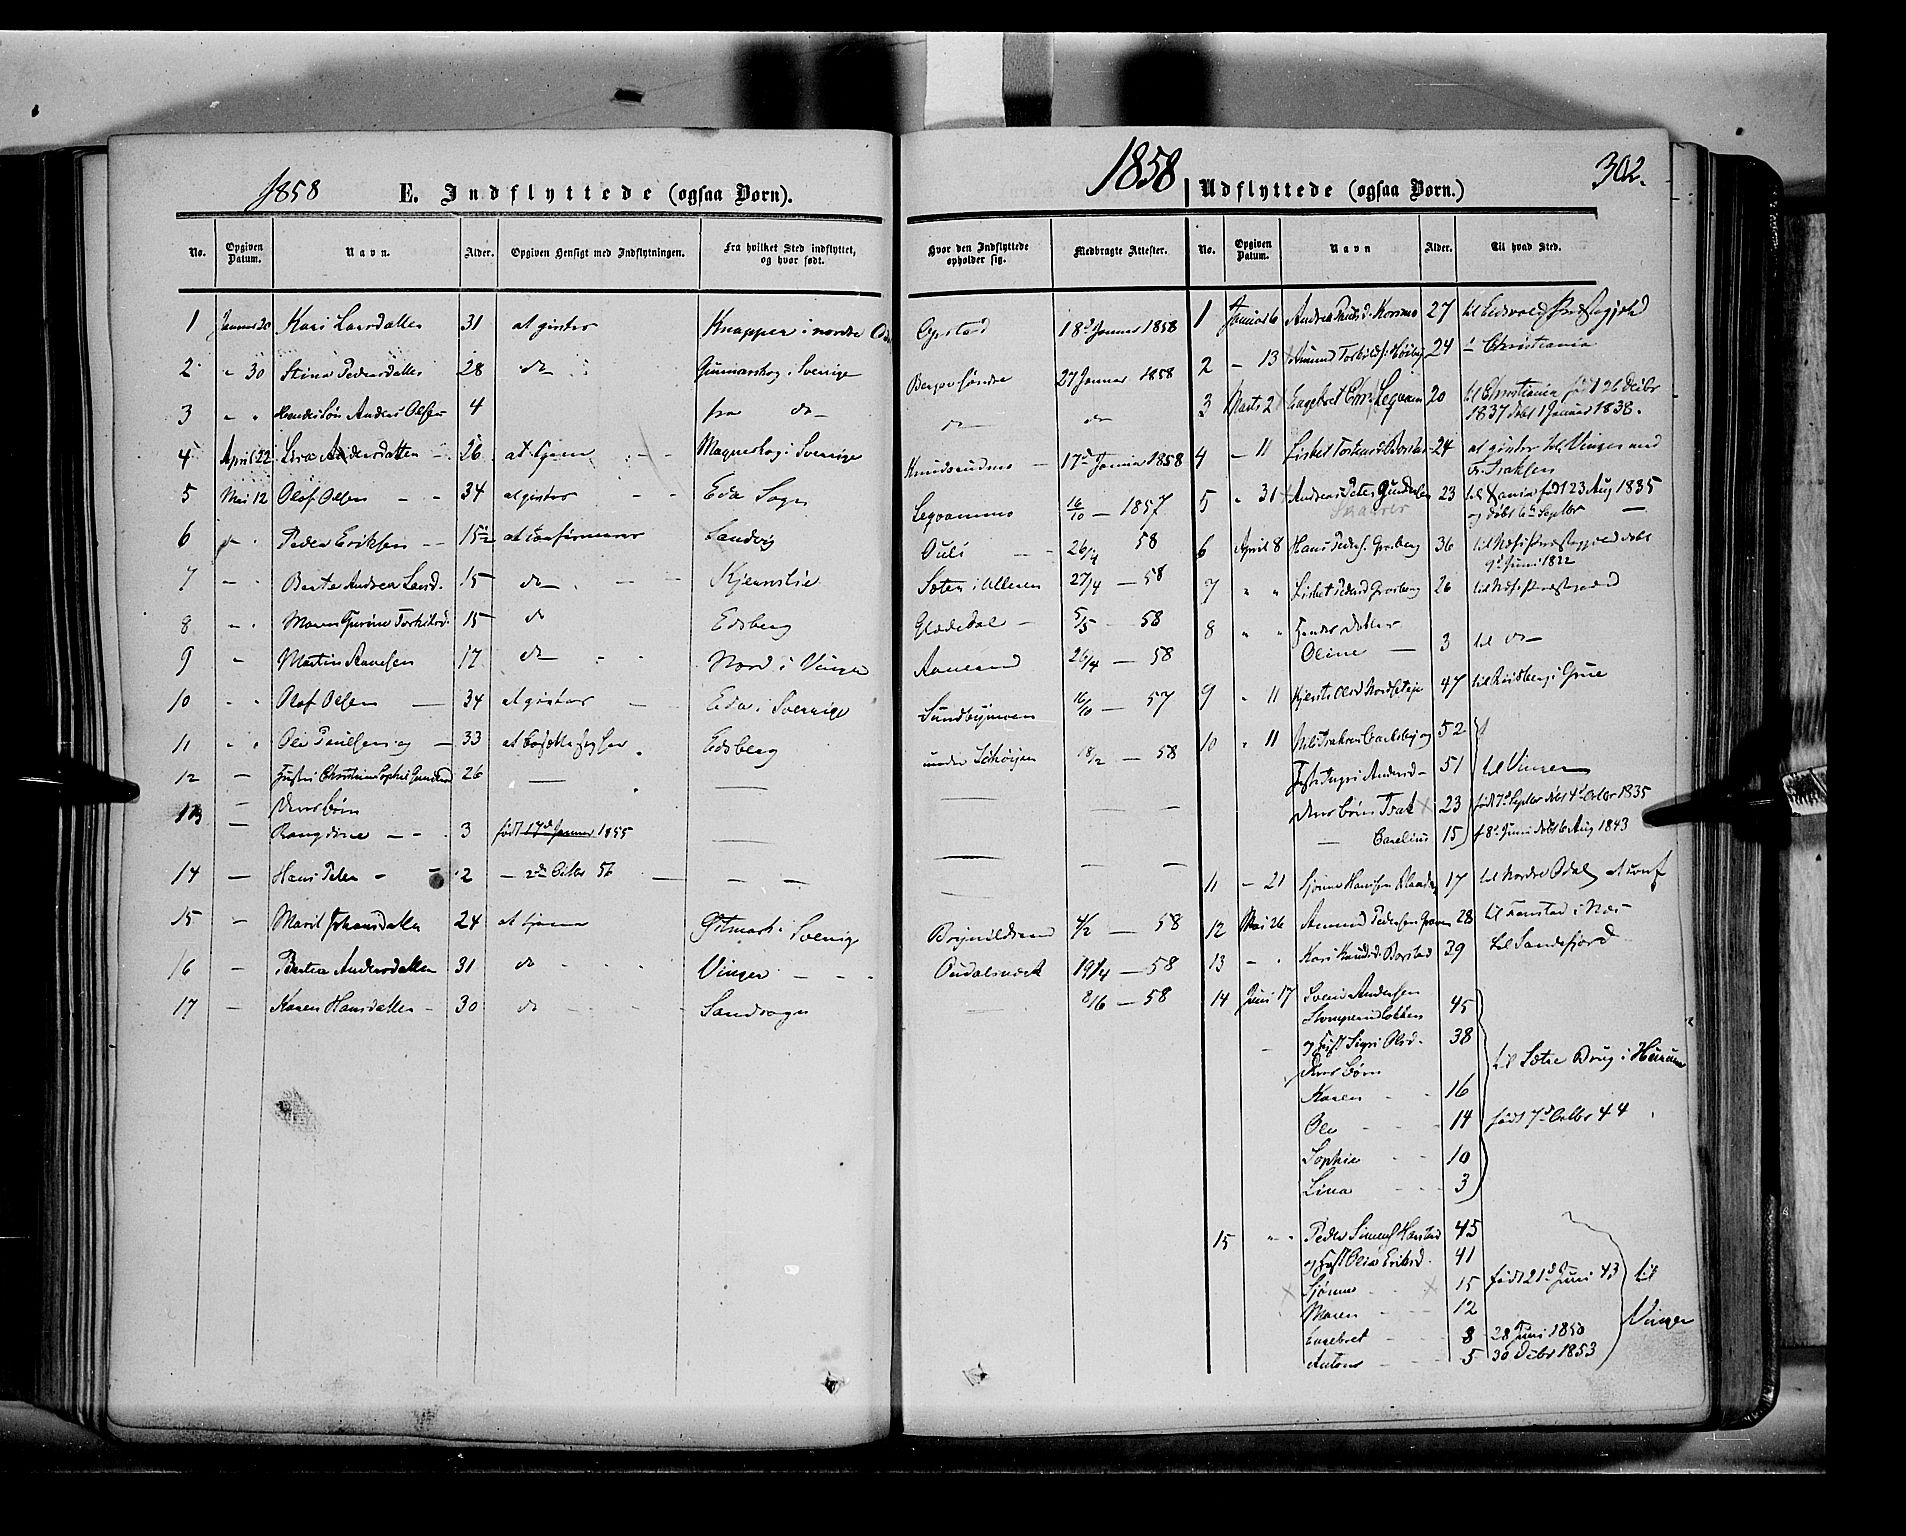 1858 E. Indflyttede (ogsaa Børn).
No. Opgiven Datum. Navn. Alder. Opgiven Hensigt med Indflytningen. Fra hvilket Sted indflyttet, og hvor født. Hvor den Indflyttede opholder sig. Medbragte Attester.
1 Januar 20 Kari Larsdatter 31 at gifter Knapper i nordre Od Opstad 18d Januar 1858
2 " 30 Stina Pedersdatter 28 do Gunnarskog i Sverrige Berger søndre 27 Januar 1858
3 " " Hendes Søn Anders Olsen 4 fra do do do
4 April 22 Lisa Andersdatter 26 at tjene Magneskog i Sverrige 17d Januar 1858
5 Mai 12 Olof Olsen 34 at gifter Eda Sogn Legvammo 16/10 1857
6 " Peder Eriksen 15½ at confirmeres Sandvig Ouli 26/4 58
7 - " Berte Andrea Larsd. 15 do Kjernslie Sæter i Ulleren 27/4 58
8 - " Maren Gurine Torkilsd. 15 do Edsberg Gladedal 5/5 58
9 - Martin Arnesen 17 do Nord i Vinger Aamund 26/4 58
10 " Olof Olsen 34 at gifter Eda i Sverrige Sundbymoen 16/10 57
11 " " Ole Paulsen og 33 at bosætte sig her Edsberg under Schøyen 18/2 58
12 - Hustru Christine Sophie Gundersd 26
13 - Deres Børn
- Rangdine 3 født 17d Januar 1855
14 - Hans Peder 2 2d Octbr 56
15 - Marit Johansdatter 24 at tjene Gitmark i Sverrige Brynildsrud 4/2 58
16 - Bertea Andersdatter 31 do Vinger Oudalsnæs 19/4 58
17 - Karen Hansdatter 30 do Sandsogn 8/6 58
1858 Udflyttede (ogsaa Børn.) 302.
No. Opgiven Datum. Navn Alder. Til hvad Sted.
1 Januar 6 Andrea Knudsd. Korsmo 27 til Eidsvold Præstegjeld
2 - 13 Amund Torkilds. Høiby 24 " Christiania
3 Marts 2 Engebret Chr. Legvam 20 til Christiania født 26 Decbr
1837 døbt 1 Januar 1838.
4 - 11 Lisbet Torkersd. Borstad 24 at gifter til Vinger med
Fr. Iraksen
5 " 31 Andreas Peter Gundersen 23 til Xania født 23 Aug 1835
Skaarer og døbt 6te Septbr
6 April 8 Hans Peders. Grasberg 36 til Næs Præstegjeld døbt
9d Juni 1822
7 " " Lisbet Pedersd Grasberg 26 til Næs Præstegjeld
8 " " Hendes Datter
Oline 3 til do
9 " 11 Kjersti Olsd Nordsteje 47 til Risberg i Grue
10 " 11 og 52
Hustru Ingri Andersd 51 til Vinger
deres børn Irak 23 født 7d Septbr døbt 4d Octbr 1835
Carelius 15 f 8d Juni døbt 6 Aug 1843
11 - 21 Sjønne Hansen 17 til Nordre Odal at conf
12 Mai 26 Amund Pedersen 28 til Fonstad i Næs
13 - " Kari Knudsd. Borstad 39 til Sandefjord
14 Juni 17 Svend Andersen
45
og Hust Sigri Olsd. 38
Deres børn til Sætre Brug i Hurum
Karen 16
Ole 14 født 7d Octbr 44
Sophie 10
Lina 3
15 " " Peder Simens Harstad 45
og Hust Olia Eriksd. 41
Sjønne 15 født 21d Juni 43 til
Maren 12 Vinger
Engebret 8 28 Juni 1850
Anton 5 30 Octbr 1853